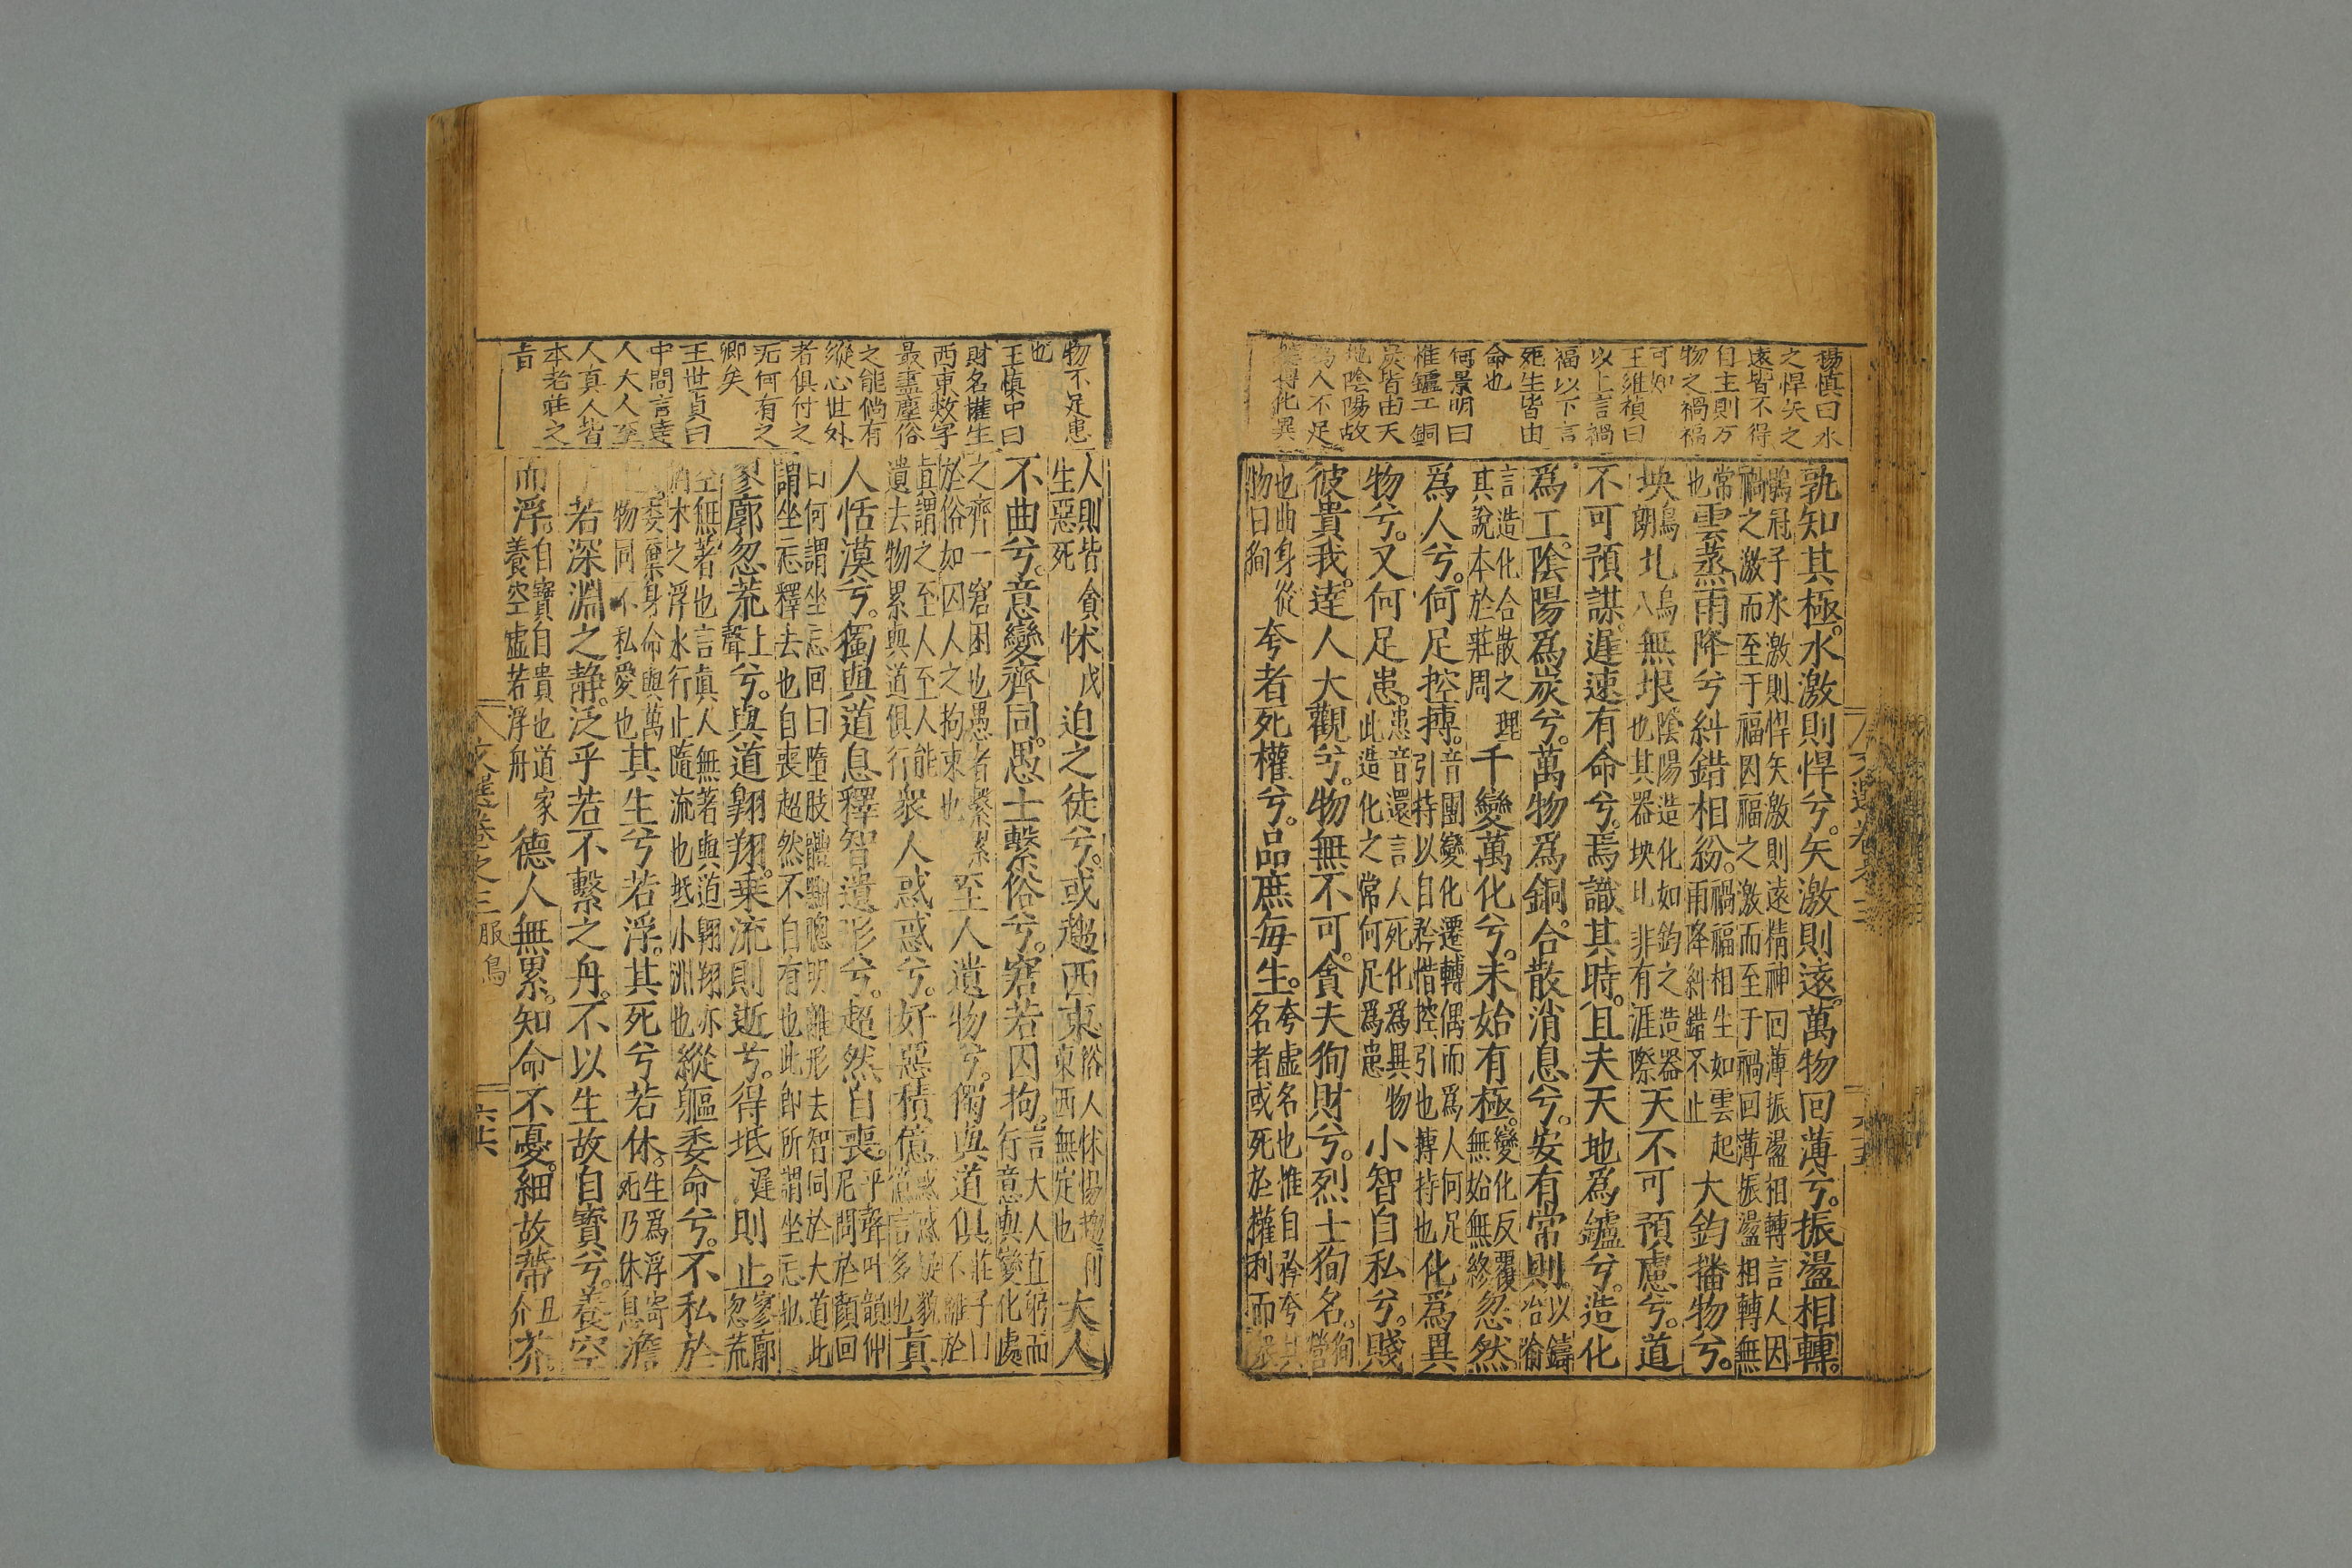 楊慎曰水
之悍矢之
遠皆不得
自主則万
物之禍福
可知
王維楨曰
以上言禍
福以下言
死生皆由
命也
何景明曰
惟鑪工銅
炭皆由天
地陰陽故
為人不足
得化異
孰知其極。水激則悍兮。矢激則遠。萬物回薄兮。振盪相轉。
鶡冠子水激則悍矢激則遠精神回薄振盪相轉言人因
禍之激而至于福因福之激而至于禍回薄振盪相轉無
常
也雲蒸雨降兮糾錯相紛。禍福相生如雲起
雨降糾錯不止大鈞播物兮。
坱烏
朗圠烏
八無垠陰陽造化如鈞之造器
也其器坱圠非有涯際天不可預慮兮。道
不可預謀。遲速有命兮。焉識其時。且夫天地為鑪兮。造化
爲工。陰陽爲炭兮。萬物爲銅。合散消息兮。安有常則。以鑄
冶喻
言造化合散之理
其說本於莊周千變萬化兮。未始有極。變化反覆
無始無終忽然
爲人兮。何足控摶。音團變化遷轉偶而爲人何足
引持以自矜惜控引也摶持也化爲異
物兮。又何足患。患音還言人死化爲異物
此造化之常何足爲患小智自私兮。賤
彼貴我。達人大觀兮。物無不可。貪夫狥財兮。烈士狥名。狥
營
也曲身從
物曰狥夸者死權兮。品庶每生。夸虛名也惟自矜夸其
名者或死於權利而
文選卷之三
六十五
物不足患
也
王慎中曰
財名權生
西東數字
最盡塵俗
之能倘有
縱心世外
者俱付之
旡何有之
鄉矣
王世貞曰
中間言達
人大人至
人真人皆
本老莊之
旨
人則皆貪
生惡死怵戌迫之徒兮。或趨西東。俗人怵惕趨利
東西無定也大人
不曲兮。意變齊同。愚士繫俗兮。窘若囚拘。言大人直躬而
行意與變化處
之齊一窘困也愚者繫累
於俗如囚人之拘束也至人遺物兮。獨與道俱。莊子曰
不離於
真謂之至人至人能
遺去物累與道俱行衆人惑惑兮。好惡積億。
人恬漠兮。獨與道息。釋智遺形兮。超然自喪。平聲叶韻仲
尼問於顏回
曰何謂坐忘回曰墮肢體黜聰明離形去智同於大道此
謂坐忘釋去也自喪超然不自有也此即所謂坐忘也
寥廓忽荒上
聲兮。與道翱翔。乘流則逝兮。得坻遲則止。寥廓
忽荒
空無著也言真人無著與道翱翔亦
猶木之浮水行止隨流也坻小洲也縱軀委命兮。不私於
委棄身命與萬
物同不私愛也其生兮若浮。其死兮若休。生爲浮寄
死乃休息澹
若深淵之靜。泛乎若不繫之舟。不以生故自寶兮。養空
而浮。自寶自貴也道家
養空虛若浮舟德人無累。知命不憂。細故蔕丑
介芥
文選卷之三
服鳥
六十六